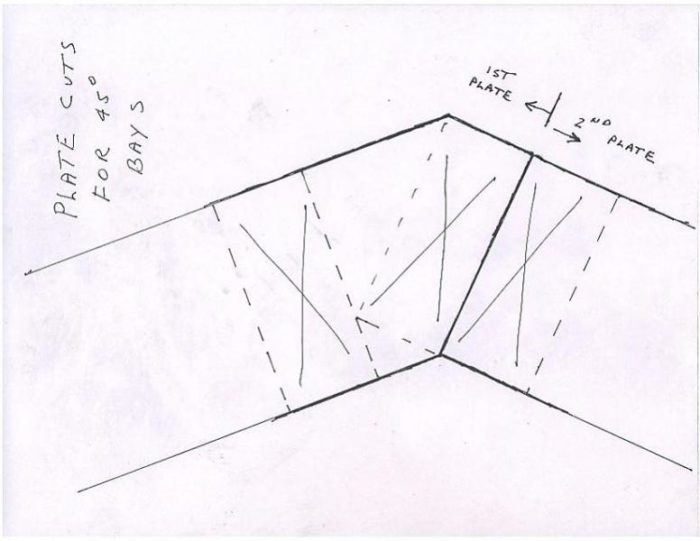 PLATE CUTS
FOR 45°
BAYS
1ST
PLATE
2ND PLATE